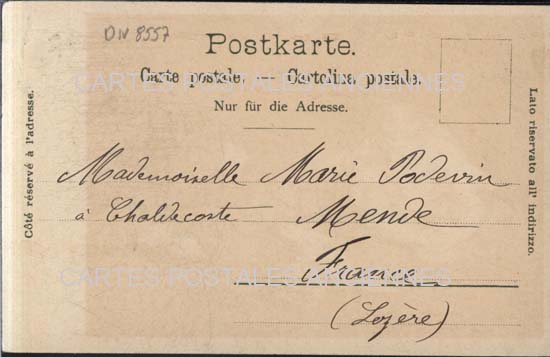 DIV 8557
Postkarte.
Carte postale. — Cartolina postale.
Nur für die Adresse.
CARTES POSTALES ANCIENNES
Côté réservé à l'adresse.
Lato riservato all' indirizzo.
Mademoiselle Marie Podevin
à Chaldecoste Mende
France
CARTES POSTALES ANCIENNES
(Lozère)